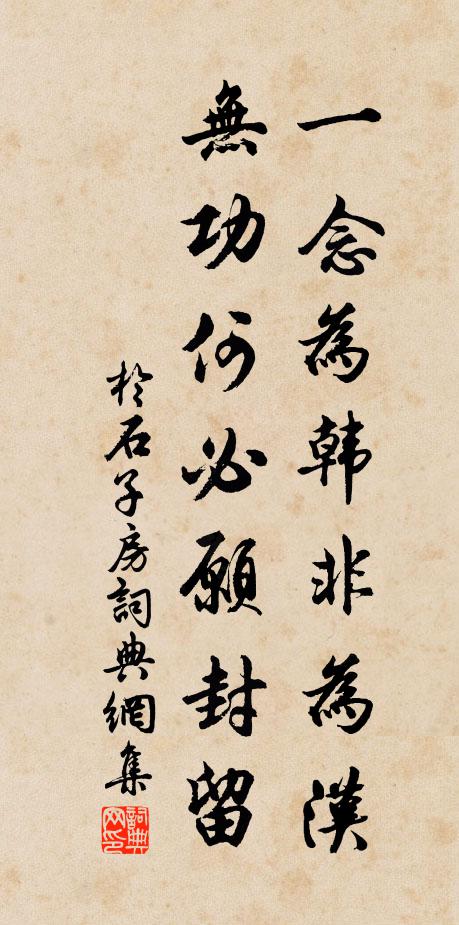 一念為韩非為漢
無功何必願封留
於石子房詞典網集
詞典网印